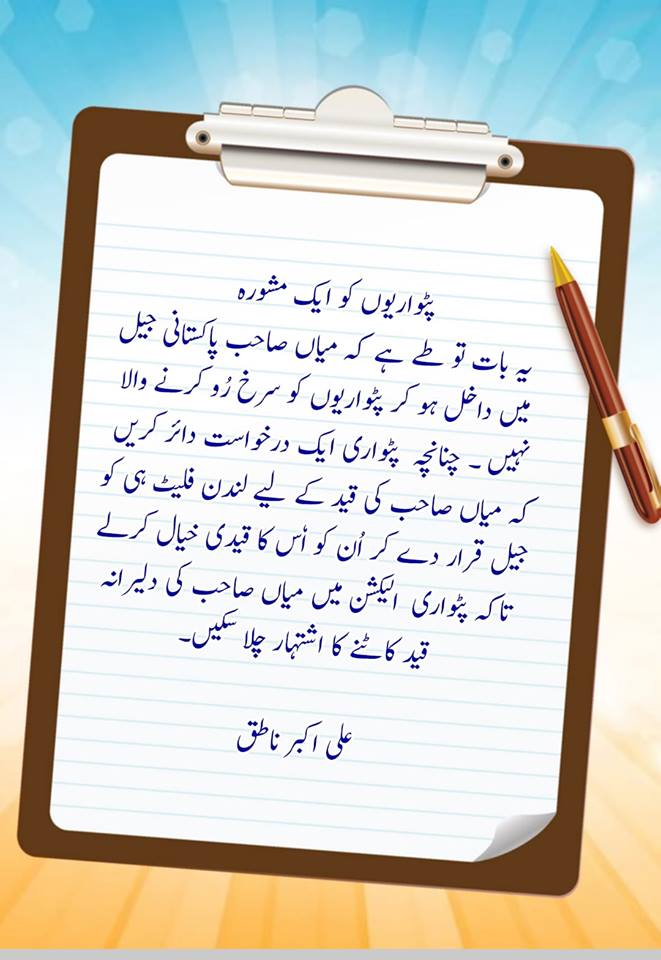 پٹواریوں کو ایک مشورہ
یہ بات تو طے ہے کہ میاں صاحب پاکستانی جیل
میں داخل ہو کر پٹواریوں کو سرخ رُو کرنے والا
نہیں ۔ چنانچہ پٹواری ایک درخواست دائر کریں
کہ میاں صاحب کی قید کے لیے لندن فلیٹ ہی کو
جیل قرار دے کر اُن کو اُس کا قیدی خیال کرلے
تاکہ پٹواری الیکشن میں میاں صاحب کی دلیرانہ
قید کاٹنے کا اشتہار چلا سکیں۔
علی اکبر ناطق